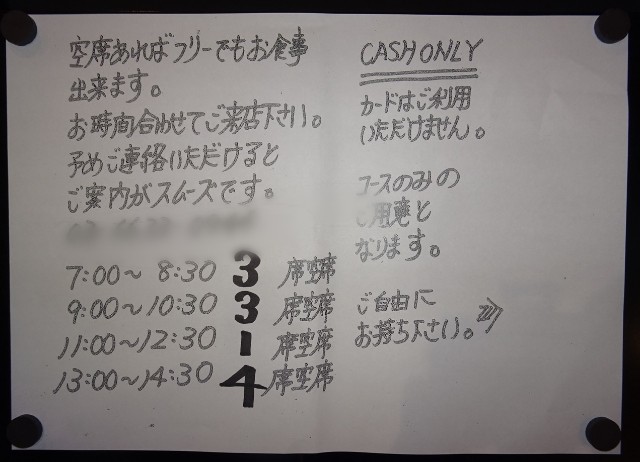 空席あればフリーでもお食事
出来ます。
お時間合わせてご来店下さい。
予めご連絡いただけると
ご案内がスムーズです。
7:00〜 8:30 3 席空席
9:00〜10:30 3 席空席
11:00〜12:30 1 席空席
13:00〜14:30 4 席空席
CASH ONLY
カードはご利用
いただけません。
コースのみの
ご用意と
なります。
ご自由に
お持ち下さい。